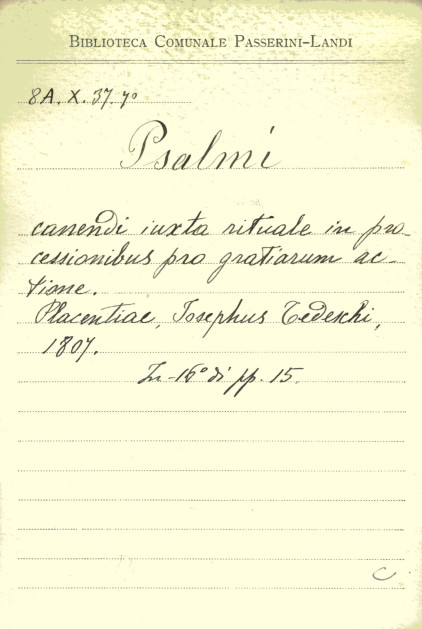 BIBLIOTECA COMUNALE PASSERINI-LANDI
8A. X. 37. 7º
Psalmi
canendi iuxta rituale in pro-
cessionibus pro gratiarum ac-
tione.
Placentiae, Josephus Tedeschi,
1807.
In-16º di pp. 15.
C